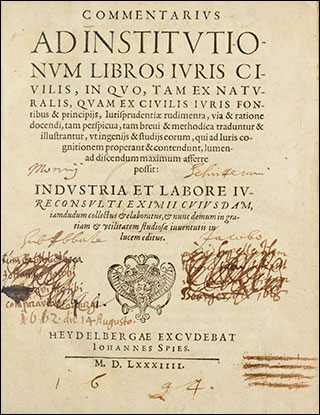 COMMENTARIVS
AD INSTITVTIO-
NVM LIBROS IVRIS CI-
VILIS, IN QVO, TAM EX NATV-
RALIS, QVAM EX CIVILIS IVRIS FON-
tibus & principijs, Iurisprudentiæ rudimenta, via & ratione
docendi, tam perspicua, tam breui & methodica traduntur &
illustrantur, vt ingenijs & studijs eorum, qui ad Iuris co-
gnitionem properant & contendunt, lumen
ad discendum maximum afferre
possit:
INDVSTRIA ET LABORE IV-
RECONSVLTI EXIMII CVIVSDAM,
iamdudum collectus & elaboratus, & nunc demum in gra-
tiam & vtilitatem studiosæ iuuentutis in
lucem editus.
Jacobo
1662. die 14 Augusto.
HEYDELBERGAE EXCVDEBAT
IOHANNES SPIES.
M. D. LXXXIIII.
1 6 9 4.